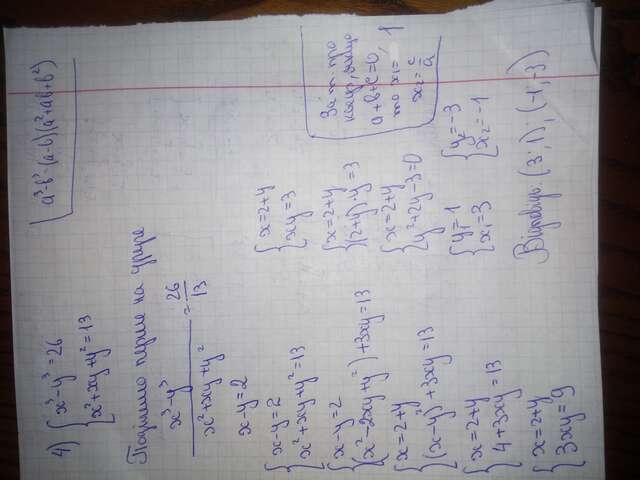 4) { x³-y³=26
{ x²+xy+y²=13
(a³-b³=(a-b)(a²+ab+b²)
Поділимо перше на друге
x³-y³ / x²+xy+y² = 26/13
x-y=2
{ x-y=2
{ x²+xy+y²=13
{ x-y=2
{ (x²-2xy+y²)+3xy=13
{ x=2+y
{ (x-y)²+3xy=13
{ x=2+y
{ 4+3xy=13
{ x=2+y
{ 3xy=9
{ x=2+y
{ xy=3
{ x=2+y
{ (2+y)·y=3
{ x=2+y
{ y²+2y-3=0
{ y₁=1
{ x₁=3
{ y₂=-3
{ x₂=-1
За т. про
якщо
a+b+c=0,
то x₁=1
x₂=c/a
Відповідь: (3;1); (-1;-3)